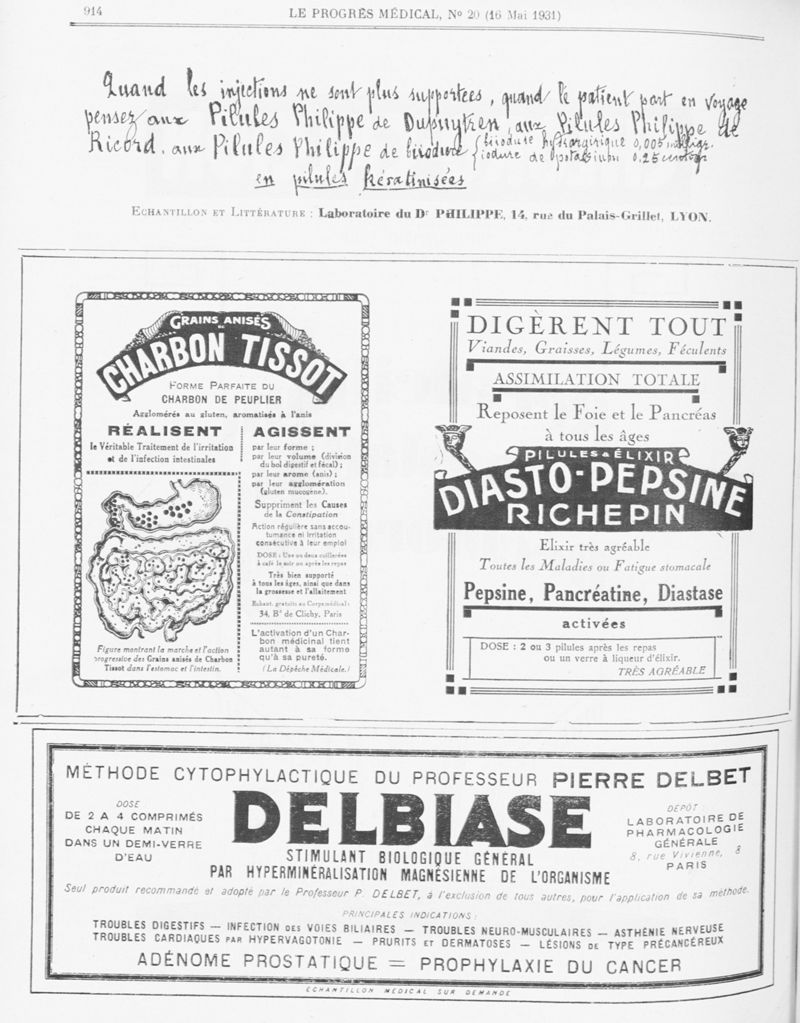 914
LE PROGRÈS MÉDICAL, No 20 (16 Mai 1931)
Quand les injections ne sont plus supportées, quand le patient part en voyage
pensez aux Pilules Philippe de Dupuytren, aux Pilules Philippe de
Ricord, aux Pilules Philippe de biiodure { biiodure hydrargirique 0,005
iodure de potassium 0,25 centigr
en pilules kératinisées
ECHANTILLON ET LITTÉRATURE : Laboratoire du Dr PHILIPPE, 14, rue du Palais-Grillet, LYON.
GRAINS ANISÉS
DE
CHARBON TISSOT
FORME PARFAITE DU
CHARBON DE PEUPLIER
Agglomérés au gluten, aromatisés à l'anis
RÉALISENT
le Véritable Traitement de l'irritation
et de l'infection intestinales
Figure montrant la marche et l'action
progressive des Grains anisés de Charbon
Tissot dans l'estomac et l'intestin.
AGISSENT
par leur forme ;
par leur volume (division
du bol digestif et fécal) ;
par leur arome (anis) ;
par leur agglomération
(gluten mucogène).
Suppriment les Causes
de la Constipation
Action régulière sans accou-
tumance ni irritation
consécutive à leur emploi
DOSE : Une ou deux cuillerées
à café le soir ou après les repas
Très bien supporté
à tous les âges, ainsi que dans
la grossesse et l'allaitement
Echant. gratuits au Corps médical :
34, Bd de Clichy, Paris
L'activation d'un Char-
bon médicinal tient
autant à sa forme
qu'à sa pureté.
(La Dépêche Médicale.)
DIGÈRENT TOUT
Viandes, Graisses, Légumes, Féculents
ASSIMILATION TOTALE
Reposent le Foie et le Pancréas
à tous les âges
PILULES & ÉLIXIR
DIASTO-PEPSINE
RICHEPIN
Elixir très agréable
Toutes les Maladies ou Fatigue stomacale
Pepsine, Pancréatine, Diastase
activées
DOSE : 2 ou 3 pilules après les repas
ou un verre à liqueur d'élixir.
TRÈS AGRÉABLE
MÉTHODE CYTOPHYLACTIQUE DU PROFESSEUR PIERRE DELBET
DOSE
DE 2 A 4 COMPRIMÉS
CHAQUE MATIN
DANS UN DEMI-VERRE
D'EAU
DELBIASE
STIMULANT BIOLOGIQUE GÉNÉRAL
PAR HYPERMINÉRALISATION MAGNÉSIENNE DE L'ORGANISME
DÉPÔT :
LABORATOIRE DE
PHARMACOLOGIE
GÉNÉRALE
8, rue Vivienne, 8
PARIS
Seul produit recommandé et adopté par le Professeur P. DELBET, à l'exclusion de tous autres, pour l'application de sa méthode.
PRINCIPALES INDICATIONS :
TROUBLES DIGESTIFS — INFECTION DES VOIES BILIAIRES — TROUBLES NEURO-MUSCULAIRES — ASTHÉNIE NERVEUSE
TROUBLES CARDIAQUES PAR HYPERVAGOTONIE — PRURITS ET DERMATOSES — LÉSIONS DE TYPE PRÉCANCÉREUX
ADÉNOME PROSTATIQUE = PROPHYLAXIE DU CANCER
ÉCHANTILLON MÉDICAL SUR DEMANDE